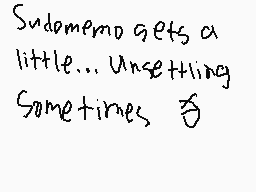 Sudomemo gets a
little... Unsettling
Sometimes